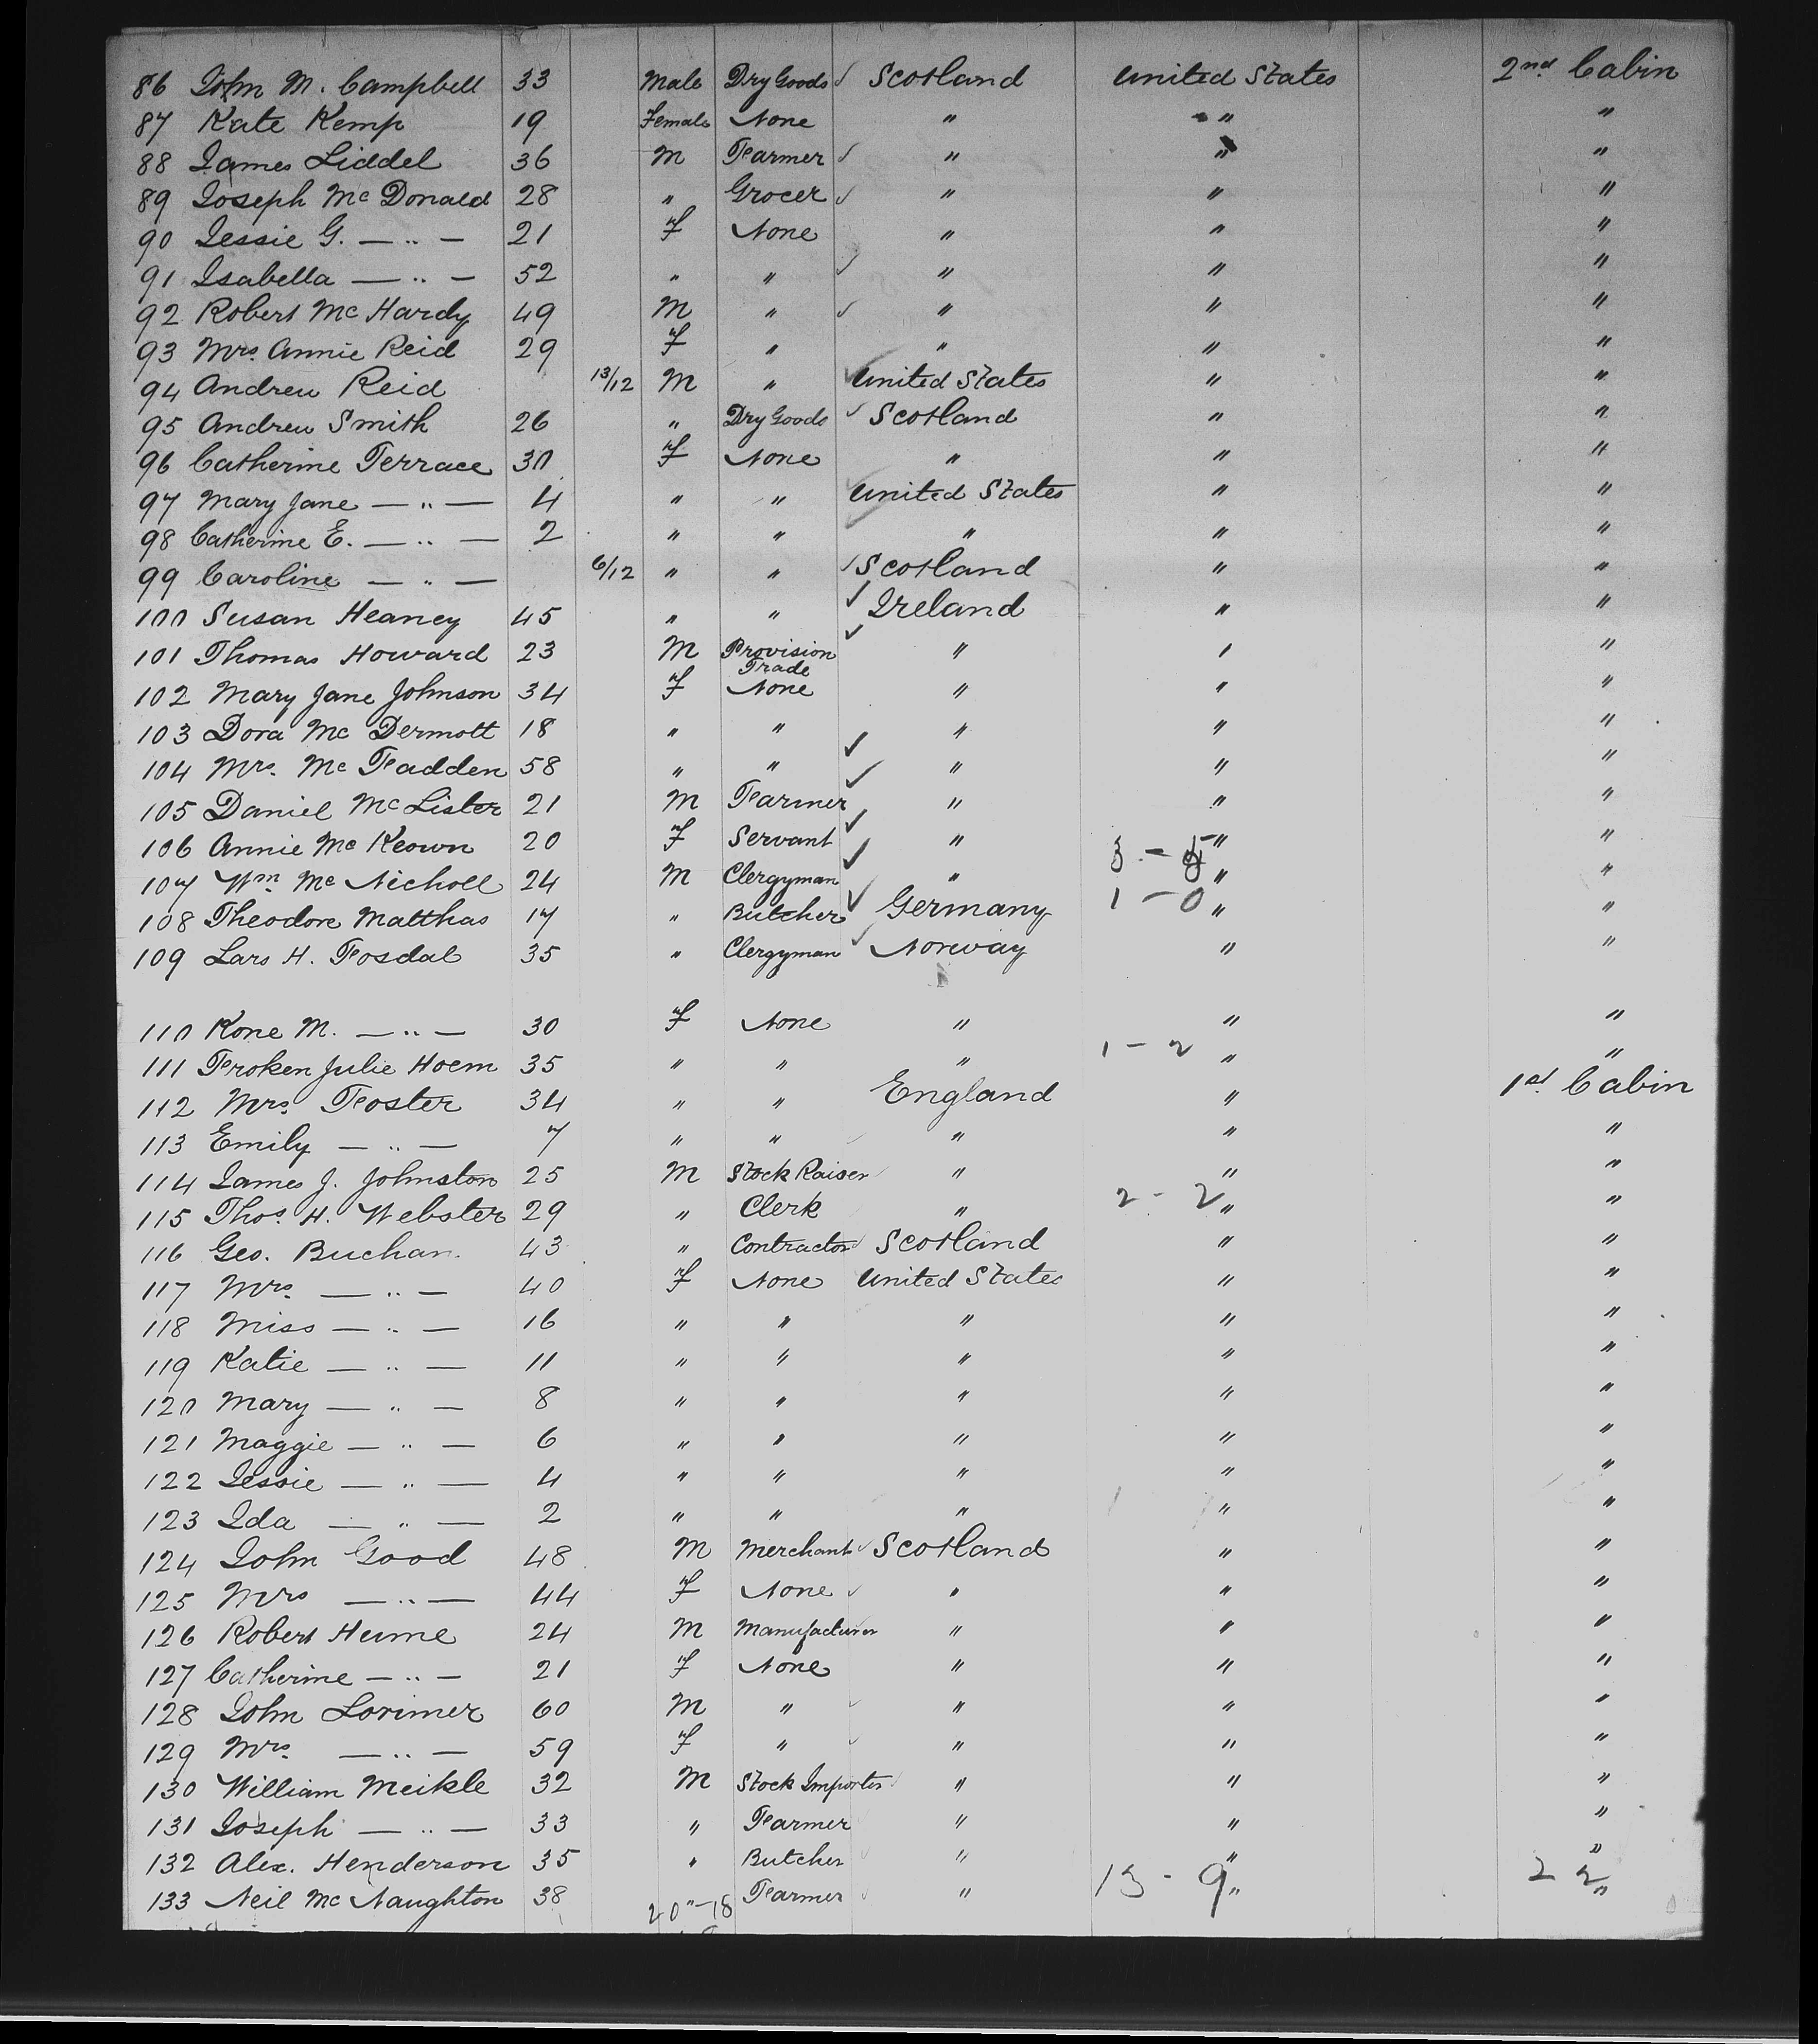 86 John M. Campbell 33 Male Dry Goods ✓ Scotland United States 2nd Cabin
87 Kate Kemp 19 Female None " " "
88 James Liddel 36 M Farmer ✓ " " "
89 Joseph Mc Donald 28 " Grocer ✓ " " "
90 Jessie G. — " — 21 f None " " "
91 Isabella — " — 52 " " ✓ " " "
92 Robert Mc Hardy 49 M " ✓ " " "
93 Mrs. Annie Reid 29 f " " " "
94 Andrew Reid 13/12 M " ✓ United States " "
95 Andrew Smith 26 " Dry Goods ✓ Scotland " "
96 Catherine Terrace 30 f None " " "
97 Mary Jane — " — 4 " " United States " "
98 Catherine E. — " — 2 " " " " "
99 Caroline — " — 6/12 " " ✓ Scotland " "
100 Susan Heaney 45 " " ✓ Ireland " "
101 Thomas Howard 23 M Provision Trade ✓ " " "
102 Mary Jane Johnson 34 f None " " "
103 Dora Mc Dermott 18 " " " " "
104 Mrs. Mc Fadden 58 " " ✓ " " "
105 Daniel Mc Lister 21 M Farmer ✓ " " "
106 Annie Mc Keown 20 f Servant ✓ " " "
107 Wm. Mc Nicholl 24 M Clergyman ✓ " " "
108 Theodore Matthas 17 " Butcher ✓ Germany 1 - 0 " "
109 Lars H. Fosdal 35 " Clergyman ✓ Norway " "
110 Kone M. — " — 30 f None " " "
111 Froken Julie Hoem 35 " " " 1 - 2 " "
112 Mrs. Foster 34 " " England " 1st Cabin
113 Emily — " — 7 " " " " "
114 James J. Johnston 25 M Stock Raiser " " "
115 Thos. H. Webster 29 " Clerk " 2 - 2 " "
116 Geo. Buchan 43 " Contractor Scotland " "
117 Mrs. — " — 40 f None United States " "
118 Miss — " — 16 " " " " "
119 Katie — " — 11 " " " " "
120 Mary — " — 8 " " " " "
121 Maggie — " — 6 " " " " "
122 Jessie — " — 4 " " " " "
123 Ida — " — 2 " " " " "
124 John Good 48 M Merchant ✓ Scotland " "
125 Mrs — " — 44 f None ✓ " " "
126 Robert Hume 24 M Manufacturer " " "
127 Catherine — " — 21 f None " " "
128 John Lorimer 60 M " ✓ " " "
129 Mrs. — " — 59 f " ✓ " " "
130 William Meikle 32 M Stock Importer " " "
131 Joseph — " — 33 " Farmer " " "
132 Alex. Henderson 35 " Butcher " " "
133 Neil Mc Naughton 38 20 - 18 Farmer " 13 - 9 " 2 2 "